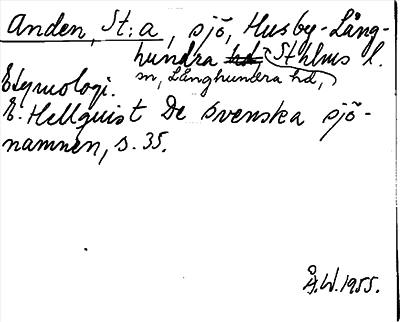 Anden, St:a, sjö, Husby-Lång-
hundra hd, Sthlms l.
sn, Långhundra hd,
Etymologi.
E. Hellquist De svenska sjö-
namnen, s. 35.
Å.W. 1955.